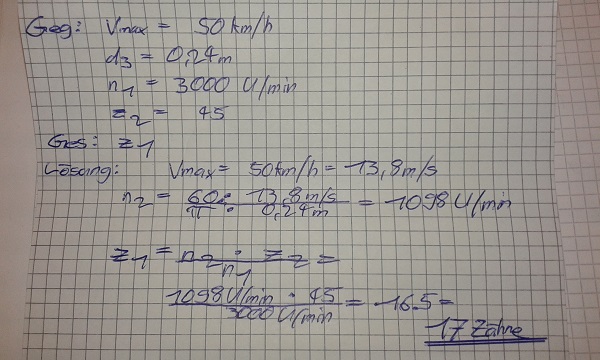 Geg: Vmax = 50 km/h
d3 = 0,24m
n1 = 3000 U/min
z2 = 45
Ges: z1
Lösung: Vmax = 50km/h = 13,8m/s
n2 = 60 · 13,8 m/s / π · 0,24m = 1098 U/min
z1 = n2 · z2 / n1 =
1098 U/min · 45 / 3000 U/min = 16.5 =
17 Zähne